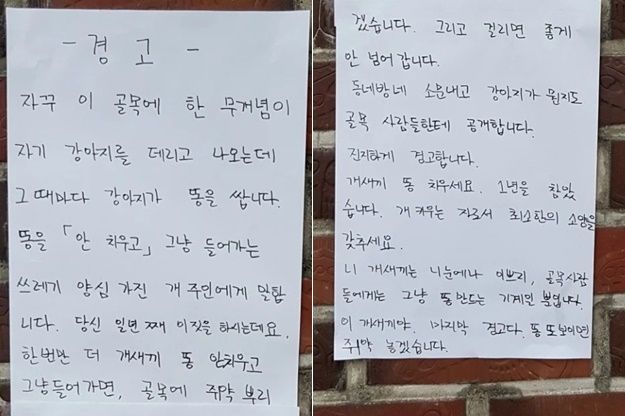 - 경 고 -
자꾸 이 골목에 한 무개념이
자기 강아지를 데리고 나오는데
그 때마다 강아지가 똥을 쌉니다.
똥을 「안 치우고」 그냥 들어가는
쓰레기 양심 가진 개 주인에게 말합
니다. 당신 일년 째 이짓을 하시는데요.
한번만 더 개새끼 똥 안치우고
그냥들어가면, 골목에 쥐약 뿌리
겠습니다. 그리고 걸리면 좋게
안 넘어갑니다.
동네방네 소문내고 강아지가 뭔지도
골목 사람들한테 공개합니다.
진지하게 경고합니다.
개새끼 똥 치우세요. 1년을 참았
습니다. 개 키우는 자로서 최소한의 소양을
갖추세요.
니 개새끼는 니눈에나 이쁘리, 골목사람
들에게는 그냥 똥만드는 기계일 뿐입니다.
이 개새끼야. 마지막 경고다. 똥 또보이면
쥐약 놓겠습니다.